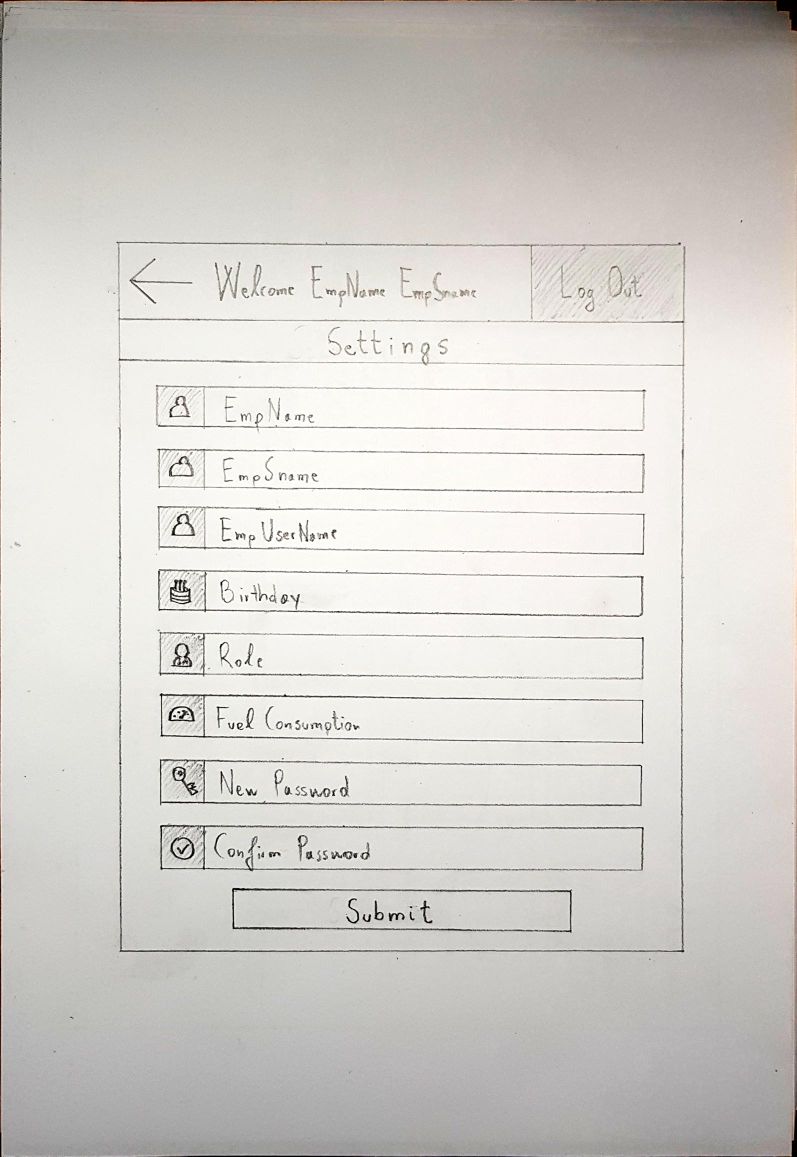 Welcome EmpName EmpSname
Log Out
Settings
EmpName
EmpSname
EmpUserName
Birthday
Role
Fuel Consumption
New Password
Confirm Password
Submit